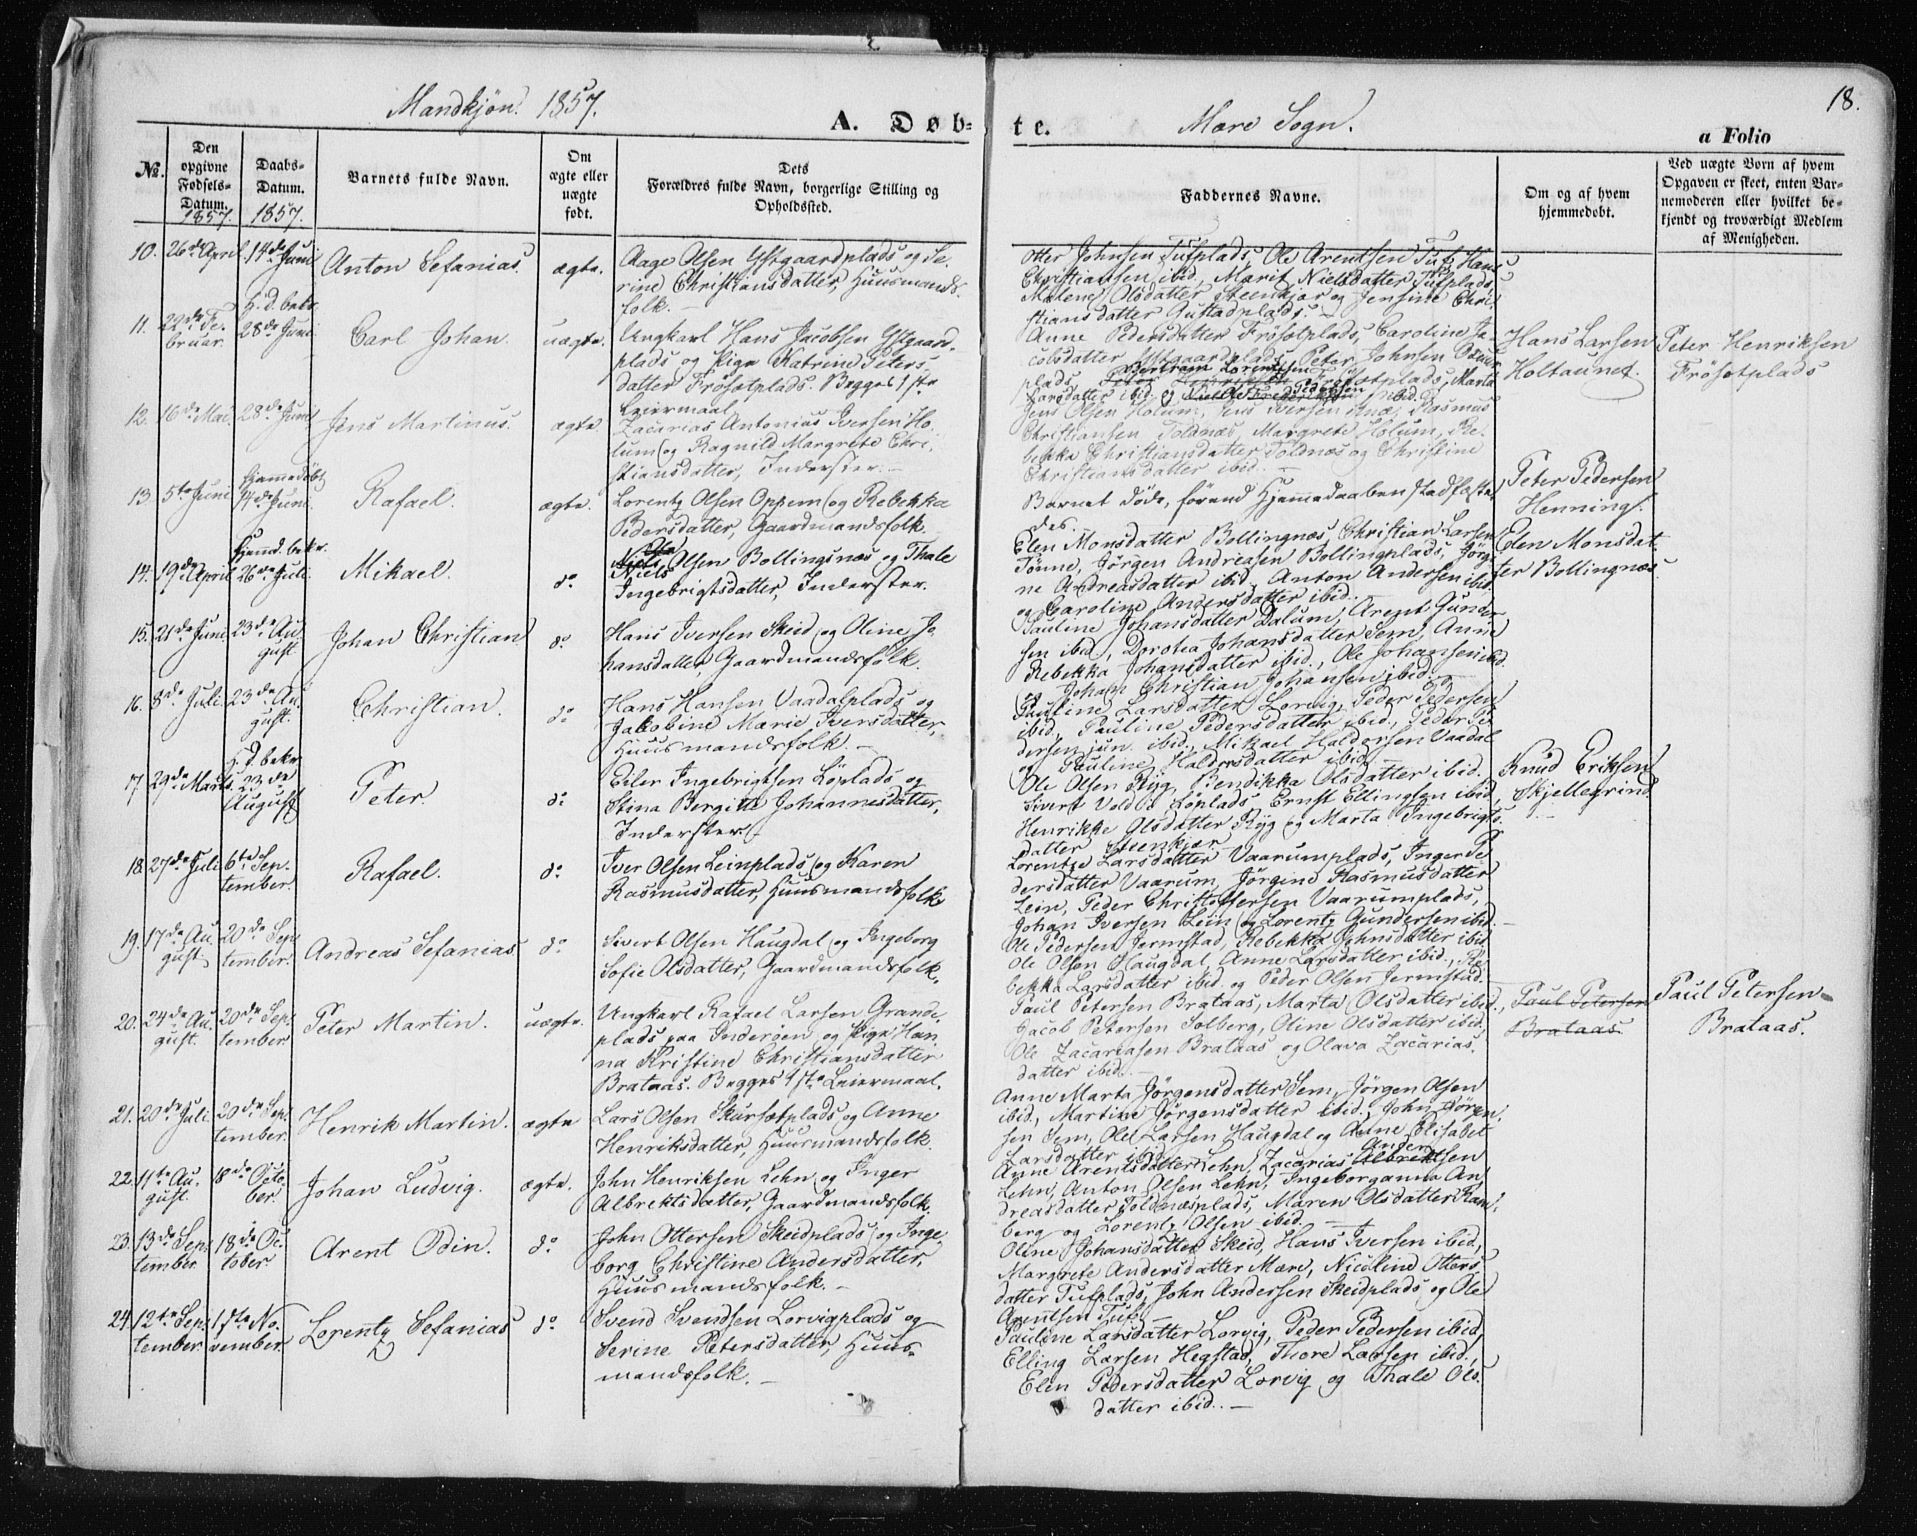 Mandkjøn. 1857.
A. Døb-
te.
Mære Sogn.
18.
a Folio
No.
Den opgivne Fødsels-Datum. 1857.
Daabs-Datum. 1857.
Barnets fulde Navn.
Om ægte eller uægte født.
Dets Forældres fulde Navn, borgerlige Stilling og Opholdssted.
Faddernes Navne.
Om og af hvem hjemmedøbt.
Ved uægte Børn af hvem Opgaven er skeet, enten Barnemoderen eller hvilket bekjendt og troværdigt Medlem af Menigheden.
10. 26de April 14de Juni Anton Sefanias. ægte.
Aage Olsen Ystgaardplads og Se-
rine Christiansdatter, Huusmands-
folk. —
Otter Johnsen Tufplads, Ole Arentsen Tuf, Hans
Christiansen ibid, Marit Nielsdatter Tufplads,
Malene Olsdatter Steenkjær og Jensine Chri-
stiansdatter Gustadplads. —
11. 22de Februar. H. D. bekr. 28de Juni Carl Johan. uægte.
Ungkarl Hans Jacobsen Ystgaard-
plads og Pige Katrine Peters-
datter Frösetplads. Begges 1ste
Leiermaal.
Anne Pedersdatter Frösetplads, Caroline Ja-
cobsdatter Ystgaardplads, Peter Johnsen
plads, Bertram Lorentsen Frösetplads, Marta
Larsdatter ibid og ibid.
Hans Larsen
Holtaunet.
Peter Henriksen
Frösetplads
12. 16de Mai 28de Juni Jens Martinus. ægte
Zacarias Antonius Iversen Ho-
lum og Ragnild Margrete Chri-
stiansdatter, Inderster. —
Jens Olsen Holum, Jens Iversen Rasmus
Christiansen Toldnæs, Margrete Holum, Re-
bekka Christiansdatter Toldnæs og Christine
Christiansdatter ibid. —
13. 5te Juni Hjemmedöbt 14de Juni. Rafael. ægte.
Lorentz Olsen Oppem og Rebekka
Bersdatter, Gaardmandsfolk.
Barnet døde, førend Hjemmedaaben stadfæste-
des. —
Peter Pedersen
Hennings.
14. 19de April Hjemd. bekr. 26de Juli. Mikael. do
Niels Olsen Bollingsnæs og Thale
Ingebrigtsdatter, Inderster.
Elen Monsdatter Bollingnæs, Christian Larsen
Tönne, Jörgen Andreasen Bollingplads, Jörgi-
ne Andreasdatter ibid, Anton Andersen ibid
og Caroline Andersdatter ibid. —
Elen Monsdat-
ter Bollingnæs.
15. 21de Juni 23de August Johan Christian do
Hans Iversen Skeid og Oline Jo-
hansdatter, Gaardmandsfolk.
Pauline Johansdatter Dalum, Arent Gunder-
sen ibid, Dorotea Johansdatter Sem, Anne
Rebekka Johansdatter ibid., Ole Johansen ibid.
og Johan Christian Johansen ibid. —
16. 8de Juli. 23de August. Christian. do
Hans Hansen Vaadalplads og
Jakobine Marie Iversdatter,
Huusmandsfolk. —
Pauline Larsdatter Lorvig, Peder Pedersen
ibid, Pauline Pedersdatter ibid., Peder Pe-
dersen jun. ibid., Mikael Haldorsen Vaadal
og Pauline Haldorsdatter ibid.
17. 29de Marts. H. D. bekr. 23de August Peter. do
Eiler Ingebrigtsen Löplads og
Stina Bergitte Johannesdatter,
Inderster.
Ole Olsen Ryg, Bendikka Olsdatter ibid.
Sivert Vold Löplads, Ernst Ellingsen ibid,
Henrikke Olsdatter Ryg og Marta Ingebrigts-
datter Steenkjær
Knud Eriksen
Skjellegrind.
18. 27de Juli 6te September. Rafael. do
Iver Olsen Leinplads og Karen
Rasmusdatter, Huusmandsfolk.
Lorentze Larsdatter Vaarumplads, Inger Pe-
dersdatter Vaarum, Jörgine Rasmusdatter
Lein, Peder Christoffersen Vaarumplads,
Johan Iversen Lein og Lorentz Gundersen ibid.
19. 17de August 20de September. Andreas Sefanias. do
Sivert Olsen Haugdal og Ingeborg
Sofie Olsdatter, Gaardmandsfolk.
Ole Pedersen Jermstad, Rebekka Johnsdatter ibid
Ole Olsen Haugdal, Anne Larsdatter ibid., Re-
bekka Larsdatter ibid. og Peder Olsen Jermstad.
20. 24de August. 20de September. Peter Martin. uægte.
Ungkarl Rafael Larsen Grande-
plads paa Inderöen og Pige Han-
na Kristine Christiansdatter
Brataas. Begges 1ste Leiermaal.
Paul Petersen Brataas, Marta Olsdatter ibid.,
Jacob Petersen Solberg, Oline Olsdatter ibid,
Ole Zacariasen Brataas og Olava Zacarias-
datter ibid. —
Paul Petersen
Brataas.
Paul Petersen
Brataas.
21. 20de Juli. 20de September. Henrik Martin. ægte
Lars Olsen Skursætplads og Anne
Henriksdatter, Huusmandsfolk.
Anne Marta Jörgensdatter Sem, Jörgen Olsen
ibid., Martine Jörgensdatter ibid., John Jörgen-
sen Sem, Ole Larsen Haugdal og Anne Elisabet
Larsdatter ibid.
22. 11te August. 18de October. Johan Ludvig. ægte.
John Henriksen Lehn og Inger
Albrektsdatter, Gaardmandsfolk.
Anne Arentsdatter Lehn, Zacarias Andersen
Lehn, Anton Olsen Lehn, Ingeborganna An-
dreasdatter Toldnæsplads, Maren Olsdatter Ram-
berg og Lorentz Olsen ibid. —
23. 13de September 18de October. Arent Odin. do
John Ottersen Skeidplads og Inge-
borg Christine Andersdatter,
Huusmandsfolk. —
Oline Johansdatter Skeid, Hans Iversen ibid,
Margrete Andersdatter Mære, Nicoline Otters-
datter Tufplads, John Andersen Skeidplads og Ole
Arentsen Tuf. —
24. 12te September. 1ste November. Lorentz Sefanias do
Svend Svendsen Lorvigplads og
Serine Petersdatter, Huus-
mandsfolk. —
Pauline Larsdatter Lorvig, Peder Pedersen ibid,
Elling Larsen Hegstad, Thore Larsen ibid.,
Elen Pedersdatter Lorvig og Thale Ols-
datter ibid. —